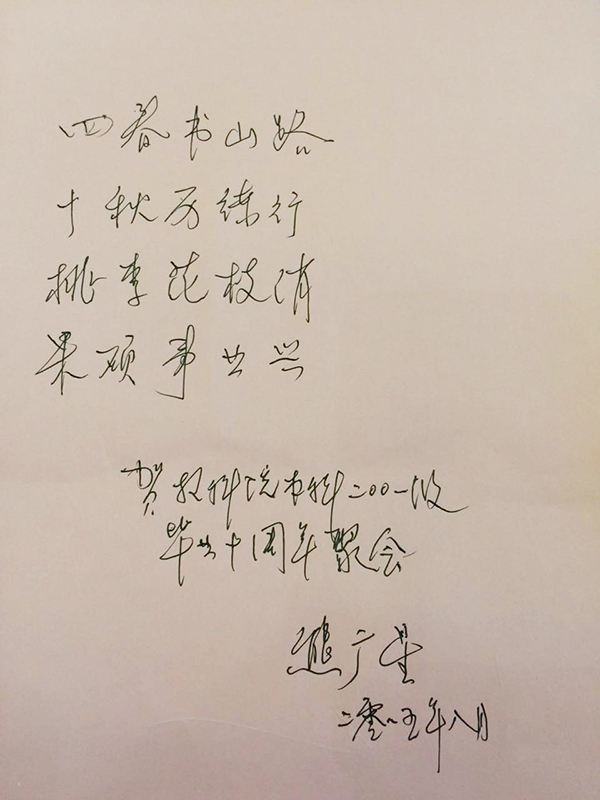 四春书山路
十秋历练行
桃李花枝俏
果硕事业兴
贺教科院本科二〇〇一级
毕业十周年聚会
熊广星
二零一五年八月